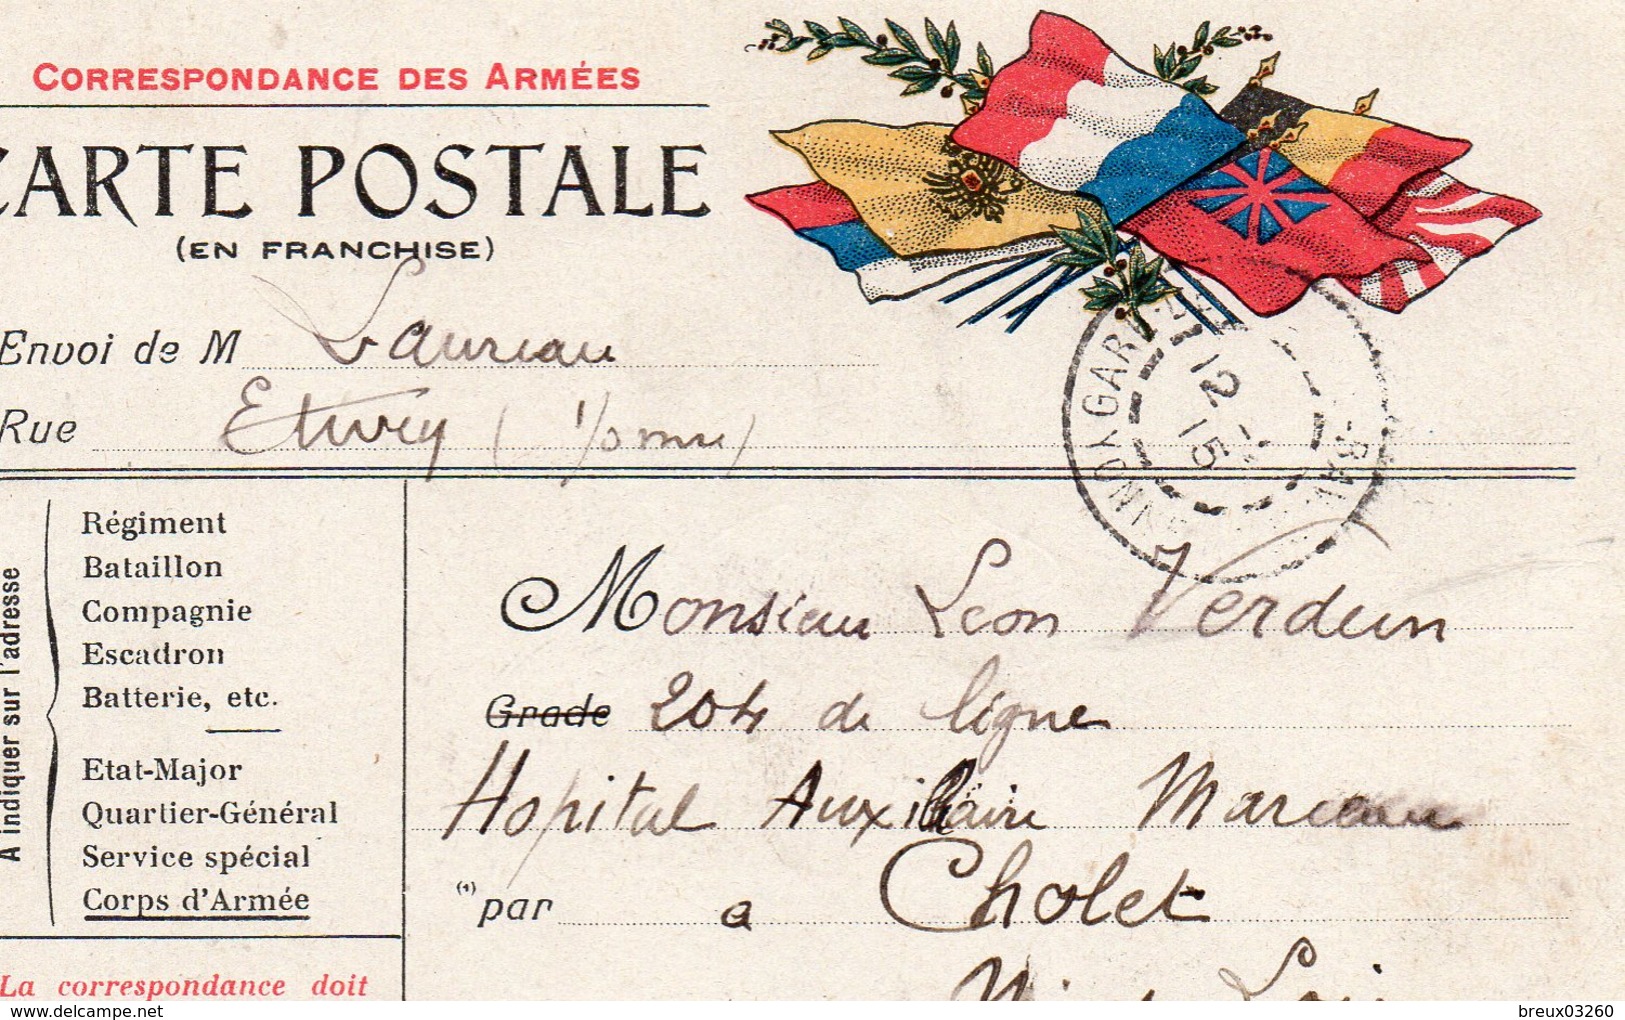 CORRESPONDANCE DES ARMÉES
CARTE POSTALE
(EN FRANCHISE)
Envoi de M Laureau
Rue Etivey (Yonne)
12
15
A indiquer sur l'adresse
Régiment
Bataillon
Compagnie
Escadron
Batterie, etc.
Etat-Major
Quartier-Général
Service spécial
Corps d'Armée
Monsieur Léon Verdun
Grade 204 de ligne
Hopital Auxiliaire Marceau
(1) par a Cholet
La correspondance doit
delcampe.net
breux03260